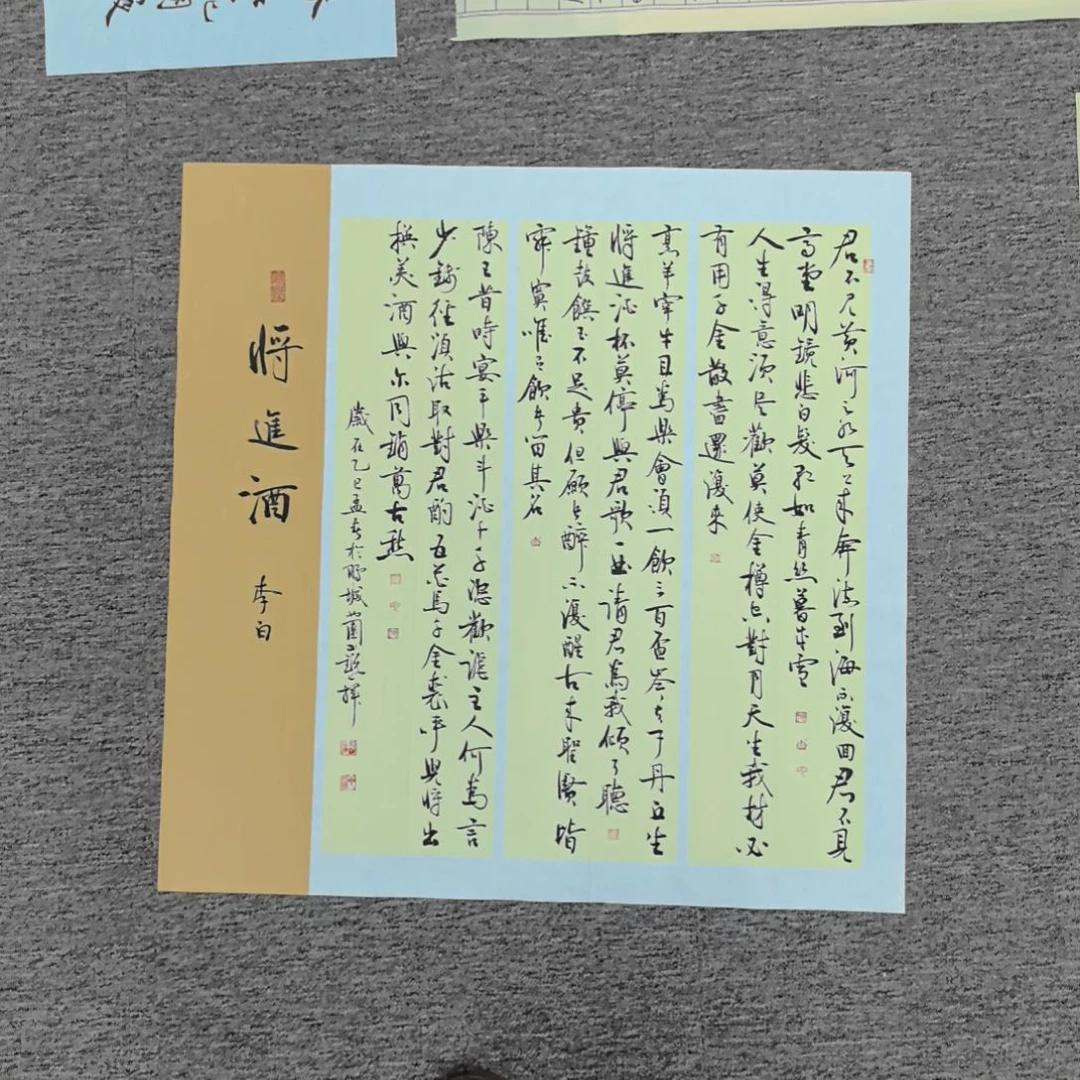 君不見黃河之水天上來奔流到海不復回君不見
高堂明鏡悲白髮朝如青絲暮成雪
人生得意須尽歡莫使金樽空對月天生我材必
有用千金散盡還復來
烹羊宰牛且為樂會須一飲三百盃岑夫子丹丘生
將進酒杯莫停與君歌一曲請君為我傾耳聽
鐘鼓饌玉不足貴但願長醉不復醒古來聖賢皆
寂寞唯有飲者留其名
陳王昔時宴平樂斗酒十千恣歡謔主人何為言
少錢徑須沽取對君酌五花馬千金裘呼兒將出
換美酒與尔同銷萬古愁
歲在乙巳孟春於
將進酒
李白